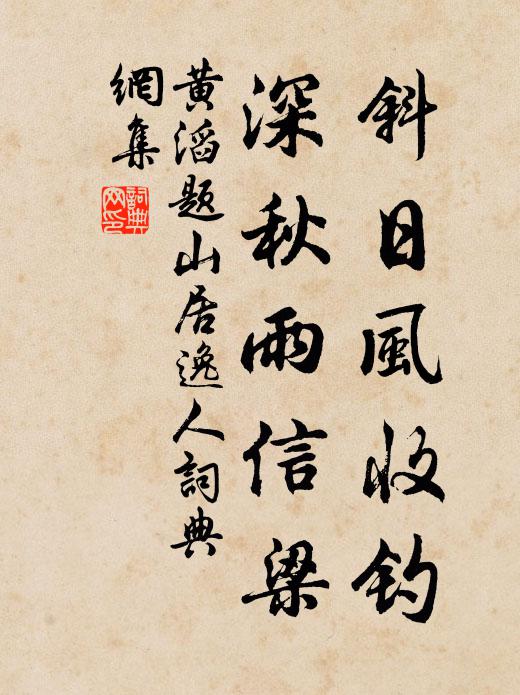 斜日風收釣
深秋雨信梁
黃滔題山居逸人詞典
網集
詞典網印